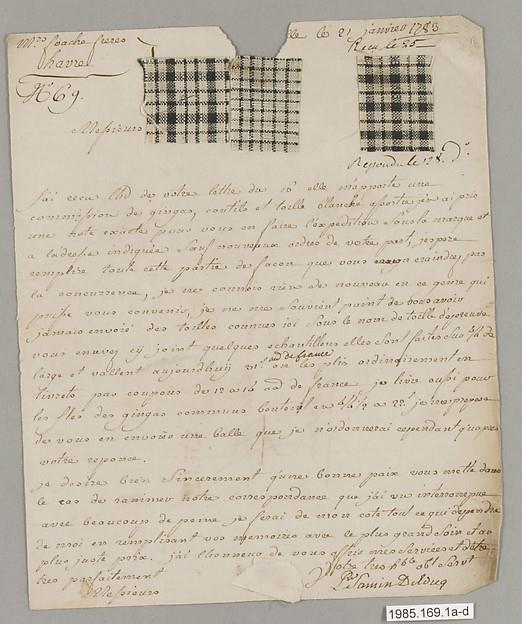 Mrs foache freres
havre
le 21 janvier 1783
Recu le 25
N° 69.
Messieurs
Repondu le 128. Do.
J'ai recu l'hd de votre lettre du 16 elle m'aporte une
commission de gingas, coutils et toille blanche aporte j'en ai pris
une note exacte pour vous en faire l'expedition sous la marque et
a l'adresse indiquée sauf nouveaux ordres de votre part, j'espere
remplire toute cette partie de facon que vous craindrez pas
la concurrence, je ne connois rien de nouveau en ce genre qui
puisse vous convenir, je ne me souvient point de vous avoir
jamais envoié des toilles connues ici sous le nom de toille
vous envoy cy joint quelques echantillons elles sont faites sur 3/4 de
large et vallent aujourdhuy on les plis ordinairement en
au de france
livrets par coupons de 12 a 16 au de france je livre aussi pour
les isles des gingas communs je me propose
de vous en envoier une balle que je n'ordonerai cependant qu'apres
votre reponce.
je desire bien sincerement qu'une bonne paix vous mette dans
le cas de ranimer notre correspondance que j'ai vu interrompue
avec beaucoup de peine je ferai de mon coté tout ce qui dependra
de moi en remplissant vos memoires avec le plus grand soin et au
plus juste prix. j'ai l'honneur de vous offrir mes services et d'etre
tres parfaitement
Messieurs
Votre tres hble ob servt
Delucq
1985.169.1a-d